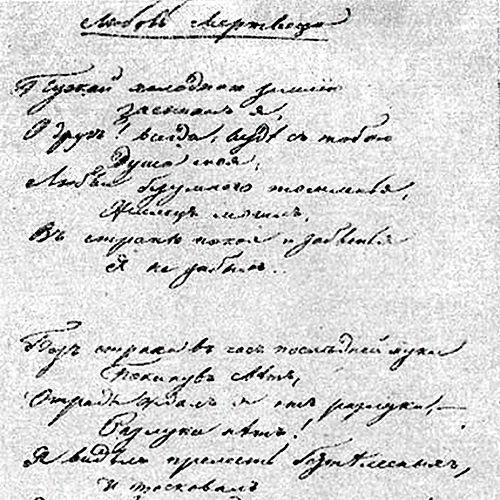 Любовь Мертвеца
Пускай холодною землею
Засыпанъ я,
О другъ! всегда, вездѣ съ тобою
Душа моя.
Любви безумного томленья,
Жилецъ могилъ,
Въ странѣ покоя и забвенья
Я не забылъ.
Безъ страха въ часъ послѣдней муки
Покинувъ свѣтъ,
Отрады ждалъ я отъ разлуки, —
Разлуки нѣтъ!
Я видѣлъ прелесть безтѣлесныхъ,
И тосковалъ